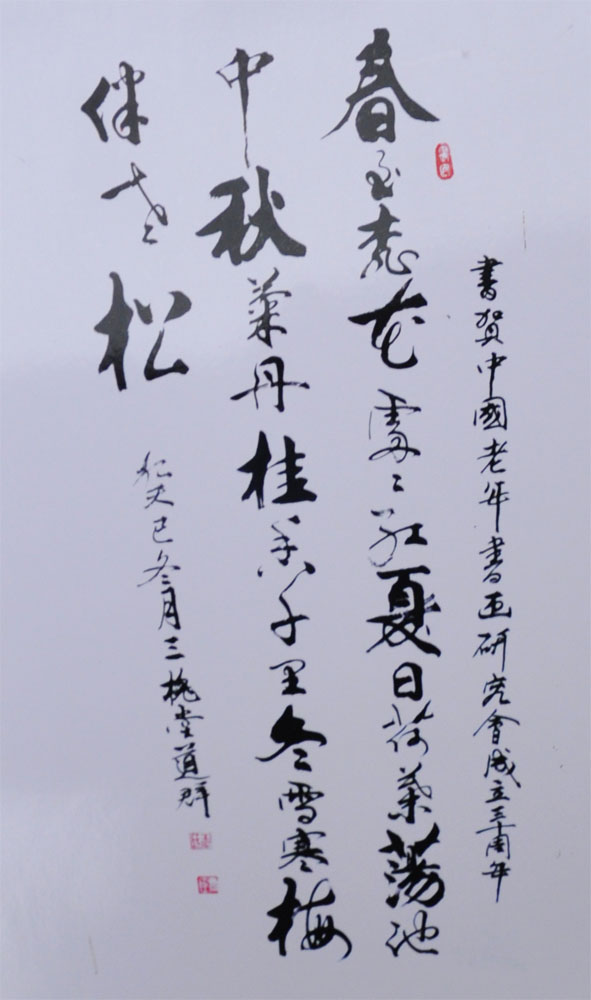 書賀中國老年書画研究會成立三十周年
春至桃花處々紅夏日荷葉蕩池
中秋菊丹桂香千里冬雪寒梅
伴老松
於癸巳冬月三槐堂道群